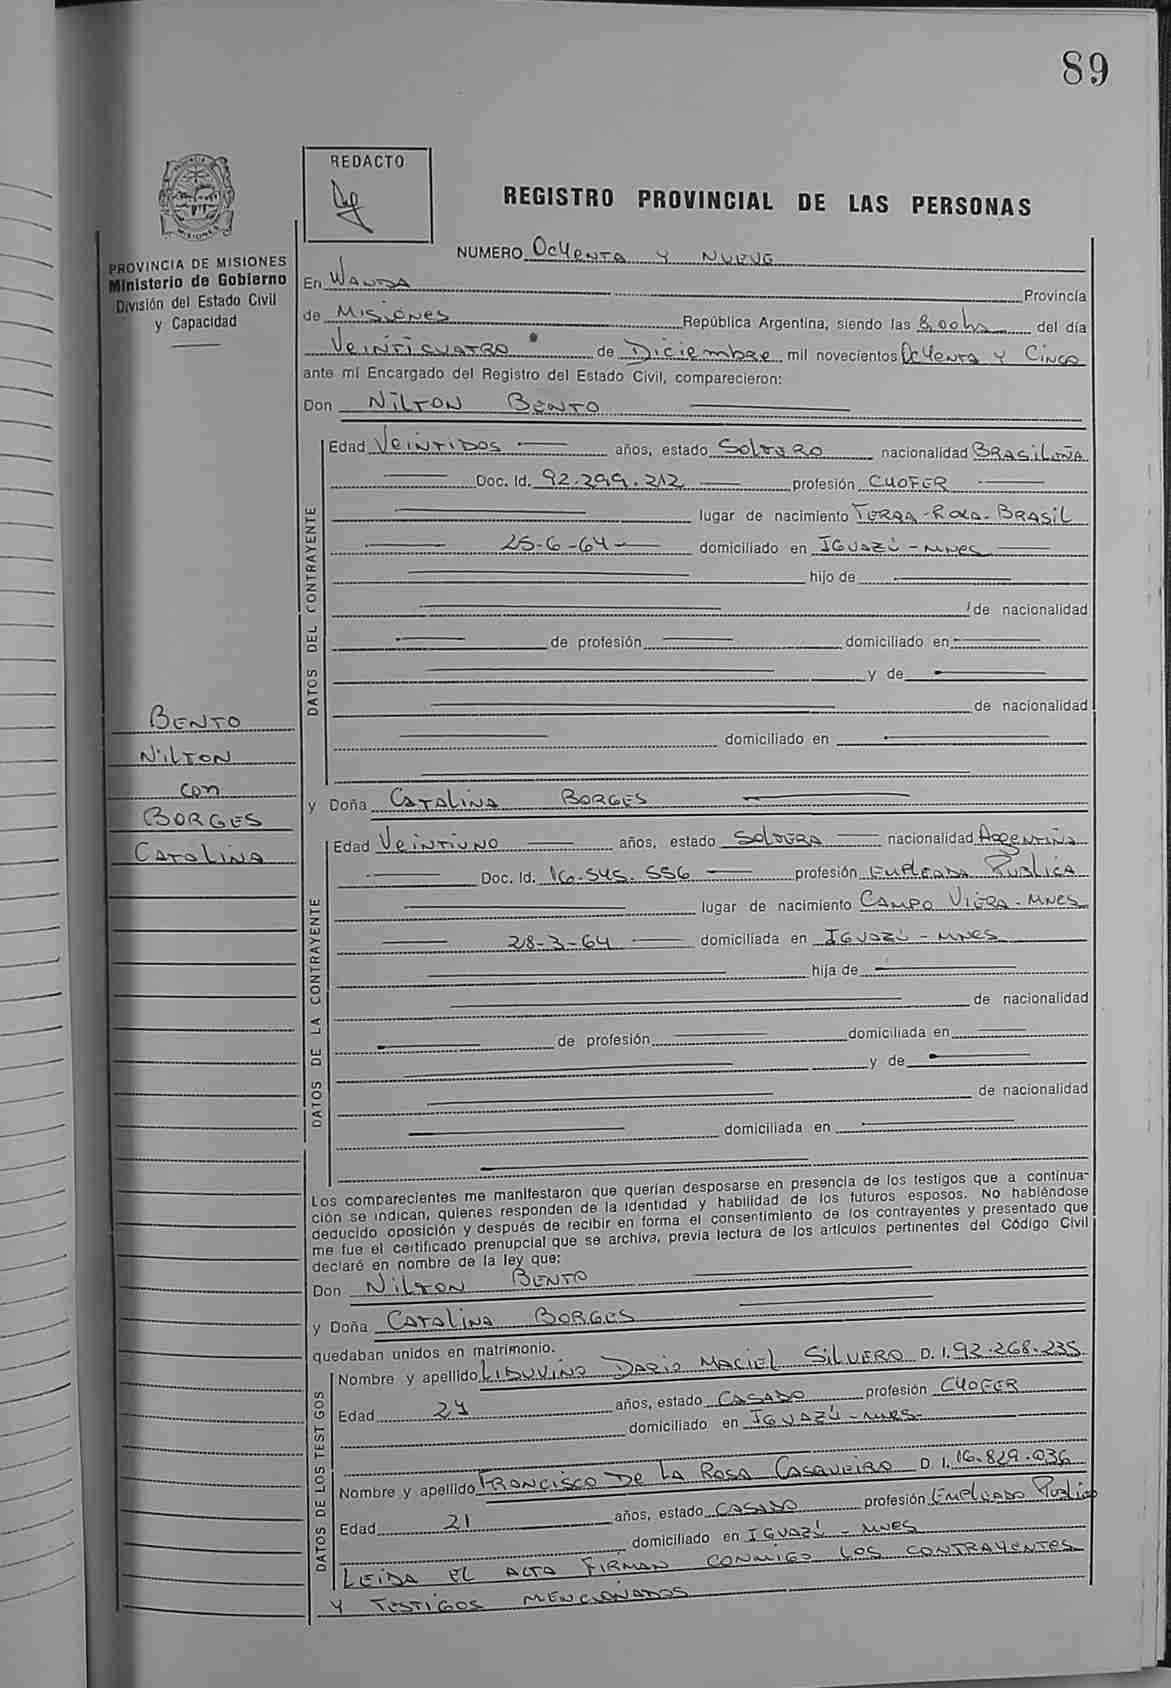 89
REDACTO
REGISTRO PROVINCIAL DE LAS PERSONAS
PROVINCIA DE MISIONES
Ministerio de Gobierno
División del Estado Civil
y Capacidad
NUMERO Ochenta y nueve
En Wanda Provincia
de Misiones República Argentina, siendo las 8,00hs del día
Veinticuatro de Diciembre mil novecientos Ochenta y Cinco
ante mí Encargado del Registro del Estado Civil, comparecieron:
Don Nilton Bento
DATOS DEL CONTRAYENTE
Edad Veintidos años, estado Soltero nacionalidad Brasileña
Doc. Id. 92.299.212 profesión Chofer
lugar de nacimiento Terra-Roxa-Brasil
25-6-64 domiciliado en Iguazú-Mnes
hijo de
de nacionalidad
de profesión domiciliado en
y de
de nacionalidad
domiciliado en
Bento
Nilton
con
Borges
Catalina
y Doña Catalina Borges
DATOS DE LA CONTRAYENTE
Edad Veintiuno años, estado Soltera nacionalidad Argentina
Doc. Id. 16.545.556 profesión Empleada Publica
lugar de nacimiento Campo Viera-Mnes
28-3-64 domiciliada en Iguazú-Mnes
hija de
de nacionalidad
de profesión domiciliada en
y de
de nacionalidad
domiciliada en
Los comparecientes me manifestaron que querían desposarse en presencia de los testigos que a continua-
ción se indican, quienes responden de la identidad y habilidad de los futuros esposos. No habiéndose
deducido oposición y después de recibir en forma el consentimiento de los contrayentes y presentado que
me fue el certificado prenupcial que se archiva, previa lectura de los artículos pertinentes del Código Civil
declaré en nombre de la ley que:
Don Nilton Bento
y Doña Catalina Borges
quedaban unidos en matrimonio.
DATOS DE LOS TESTIGOS
Nombre y apellido Liduvino Dario Maciel Silvero D.I. 92.268.235
Edad 24 años, estado Casado profesión Chofer
domiciliado en Iguazú-Mnes-
Nombre y apellido Francisco De La Rosa Casqueiro D.I. 16.829.036
Edad 21 años, estado Casado profesión Empleado Publico
domiciliado en Iguazú-Mnes
Leida el alta firman conmigo los contrayentes
y testigos mencionados